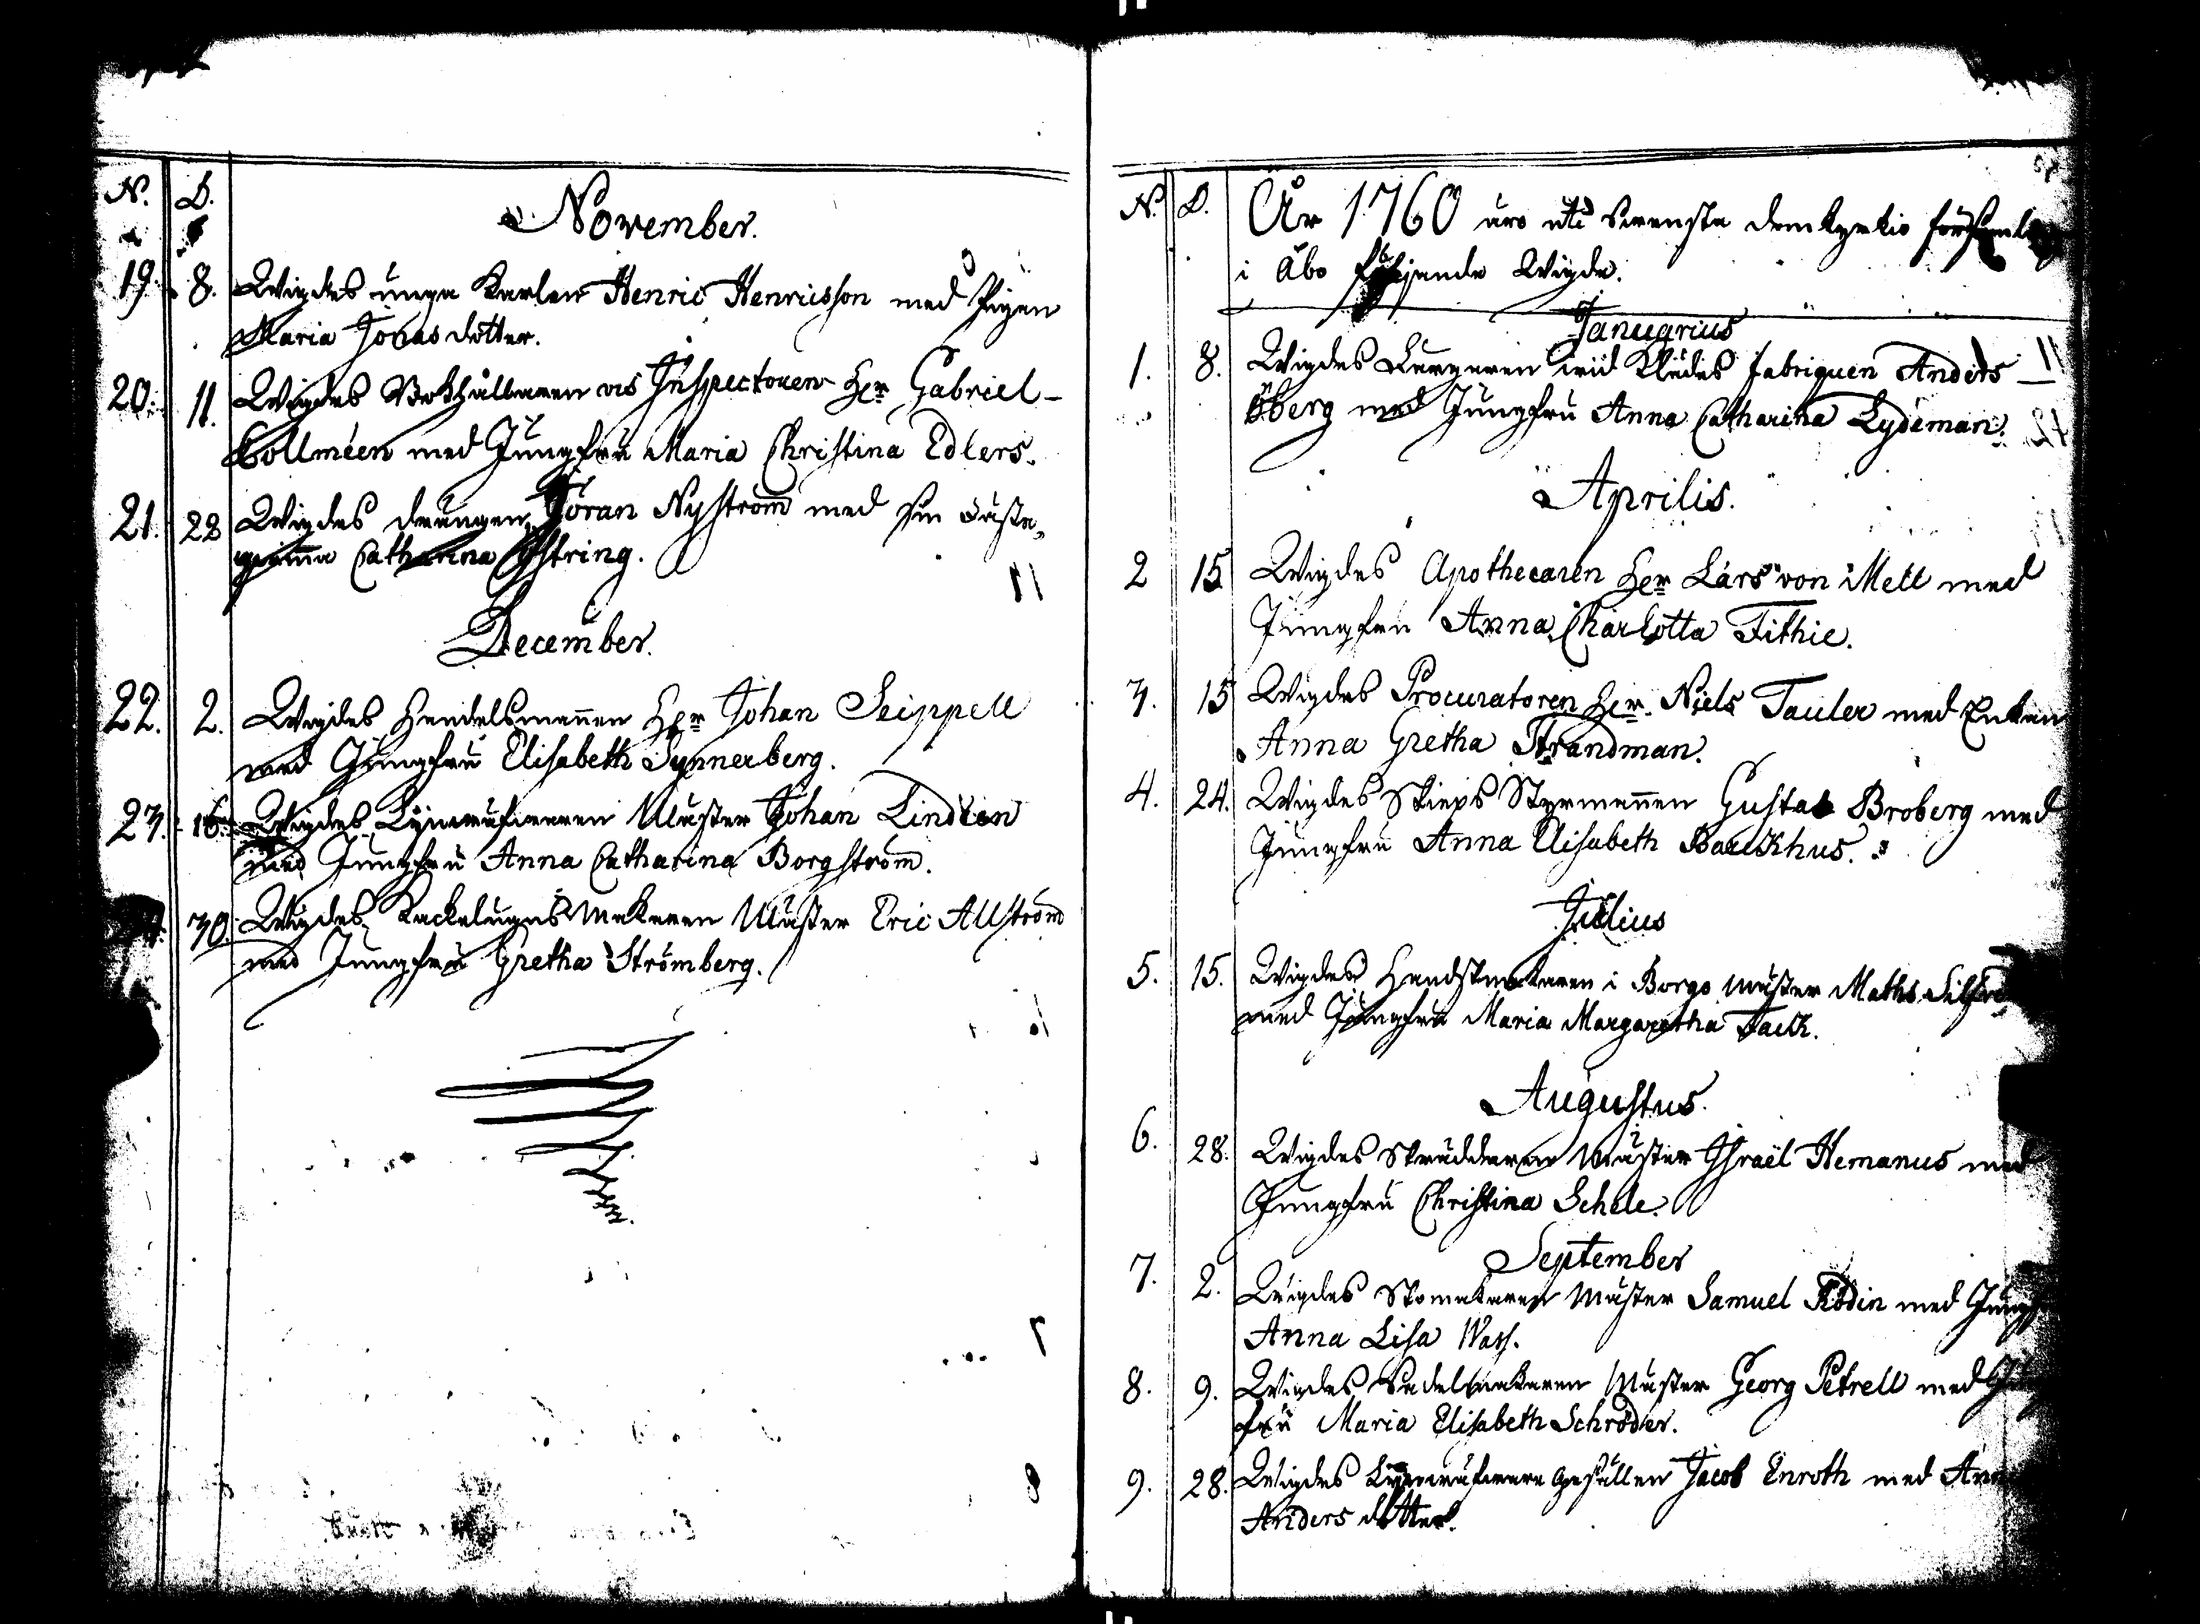 N. D.
November.
19. 8. Wigdes unga Karlen Henric Henricsson med Pigan
Maria Jonas dotter.
20. 11. Wigdes Bokhållaren vis Inspectoren Hr Gabriel
Bollméen med Jungfru Maria Christina Edlers.
21. 22 Wigdes drängen Jöran Nyström med sin Fäste-
qvinna Catharina
December.
22. 2. Wigdes Handelsmannen Hr Johan Seippell
med Jungfru Elisabeth Synnerberg.
23. 16. Wigdes Linneväfwaren Mäster Johan
med Jungfru Anna Catharina Borgström.
30. Wigdes Kackelugns Makaren Mäster Eric Allström
med Jungfru Gretha Strömberg.
N. D. År 1760 äro uti Swenska domkyrkio
i Åbo följande Wigde.
Januarius
1. 8. Wigdes Burgaren wid Klädes fabriquen Anders
Öberg med Jungfru Anna Catharina Lydeman.
Aprilis.
2 15 Wigdes Apothecaren Hr Lars von Mell med
Jungfru Anna Charlotta Tithie.
3. 15 Wigdes Procuratoren Hr Niels Tauler med Enkan
Anna Gretha Strandman.
4. 24. Wigdes Skieps Styrmannen Gustav Broberg med
Jungfru Anna Elisabeth Baeckhus.
Julius
5. 15. Wigdes Handskmakaren i Borgo Mäster Maths
med Jungfru Maria Margaretha Tack.
Augustus.
6. 28. Wigdes Skräddaren Mäster Israël Hemanus med
Jungfru Christina Schele.
September
7. 2. Wigdes Skomakaren Mäster Samuel Rodin med
Anna Lisa Wass.
8. 9. Wigdes Sadelmakaren Mäster Georg Petrell med
fru Maria Elisabeth Schröder.
9. 28. Wigdes Linnewäfware Gesällen Jacob Enroth med
Anders dotter.